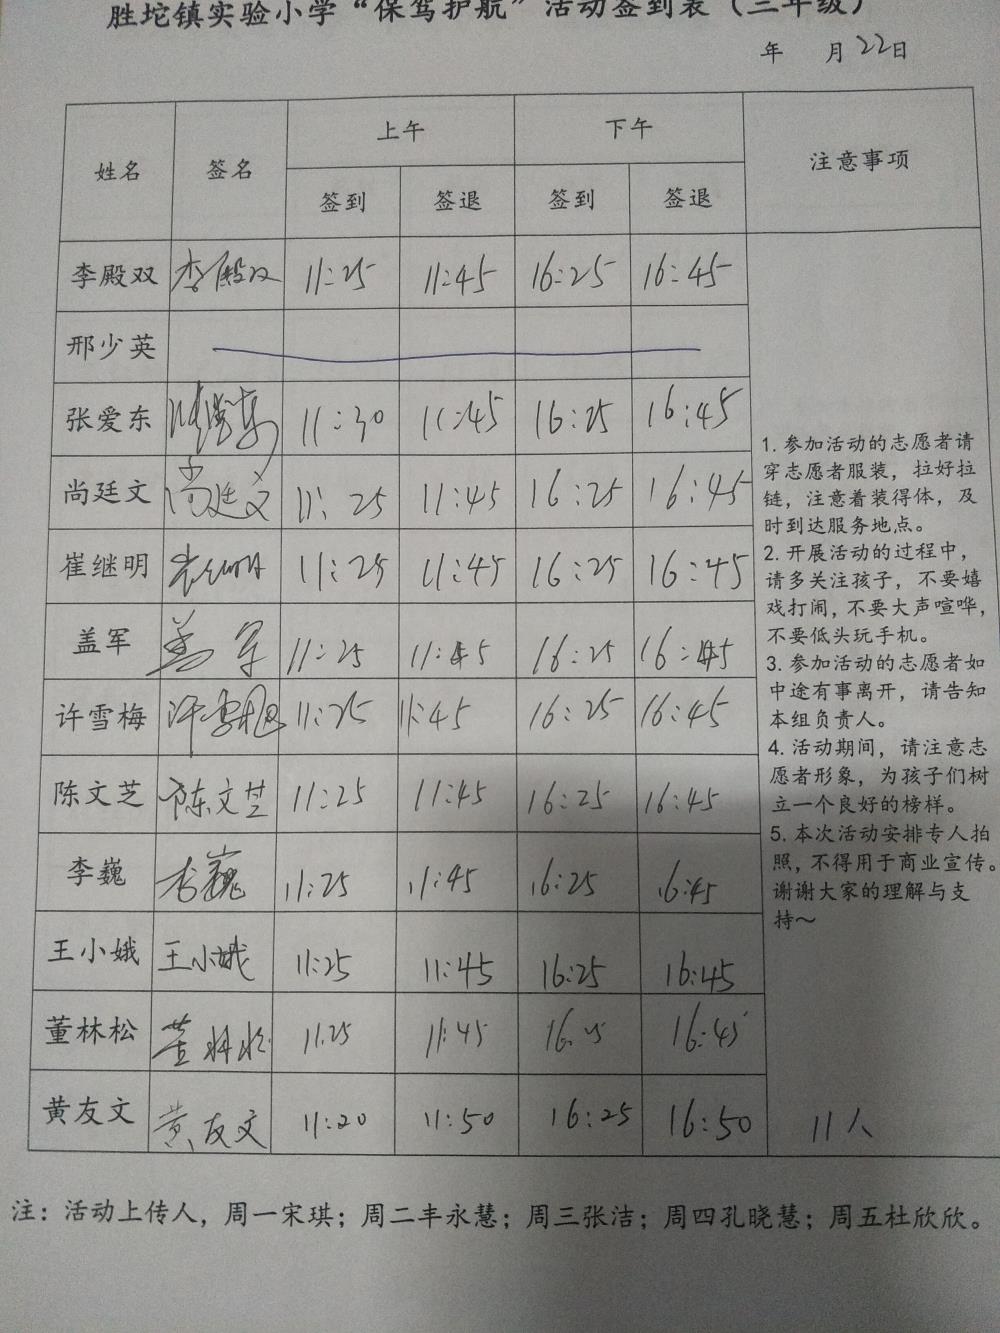 胜坨镇实验小学“保驾护航”活动签到表（三年级）
年 月22日
姓名 签名 上午 下午 注意事项
签到 签退 签到 签退
李殿双 李殿双 11:25 11:45 16:25 16:45
邢少英
张爱东 张爱东 11:30 11:45 16:25 16:45
尚廷文 尚廷文 11:25 11:45 16:25 16:45
崔继明 崔继明 11:25 11:45 16:25 16:45
盖军 盖军 11:25 11:45 16:25 16:45
许雪梅 许雪梅 11:25 11:45 16:25 16:45
陈文芝 陈文芝 11:25 11:45 16:25 16:45
李巍 李巍 11:25 11:45 16:25 16:45
王小娥 王小娥 11:25 11:45 16:25 16:45
董林松 董林松 11:25 11:45 16:25 16:45
黄友文 黄友文 11:20 11:50 16:25 16:50
1. 参加活动的志愿者请
穿志愿者服装，拉好拉
链，注意着装得体，及
时到达服务地点。
2. 开展活动的过程中，
请多关注孩子，不要嬉
戏打闹，不要大声喧哗，
不要低头玩手机。
3. 参加活动的志愿者如
中途有事离开，请告知
本组负责人。
4. 活动期间，请注意志
愿者形象，为孩子们树
立一个良好的榜样。
5. 本次活动安排专人拍
照，不得用于商业宣传。
谢谢大家的理解与支
持～
11人
注：活动上传人，周一宋琪；周二丰永慧；周三张洁；周四孔晓慧；周五杜欣欣。